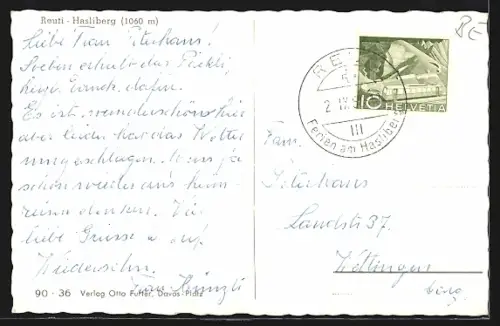 Reuti - Hasliberg (1060 m)
Liebe Frau
Soeben erhielt das Päckli,
Dank dafür.
Es ist wunderschön hier
aber leider hat das Wetter
umgeschlagen. Muss ja
schon wieder ans heim-
reisen denken. Viele
liebe Grüsse u. auf
Wiedersehn.
Frau Künzli
90 - 36 Verlag Otto Furter, Davos-Platz
BE
REUTI
2. IX.
III
Ferien am Hasliberg
10 HELVETIA
Fam.
Landstr. 37.
Wettingen